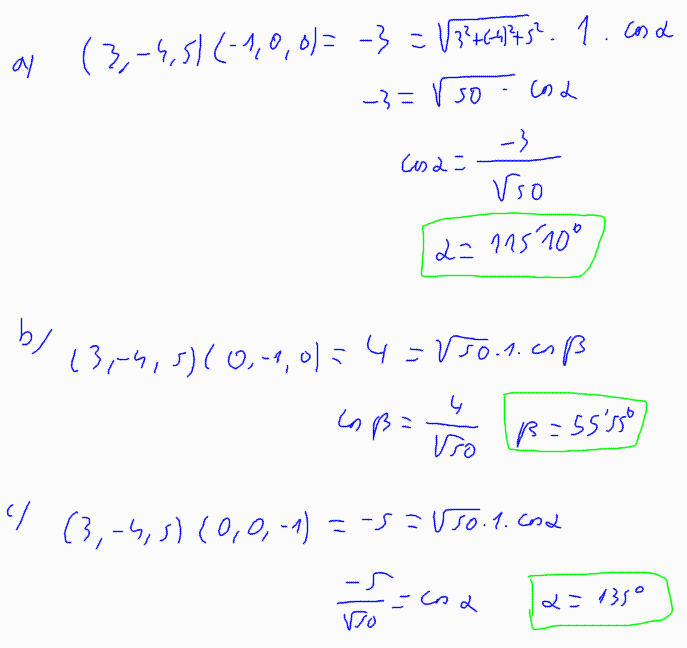 a) (3,-4,5)(-1,0,0)= -3 = √3²+(-4)²+5² · 1 · cos α
-3 = √50 · cos α
cos α = -3/√50
α = 115'10°
b) (3,-4,5)(0,-1,0) = 4 = √50·1·cos β
cos β = 4/√50 β = 55'55°
c) (3,-4,5)(0,0,-1) = -5 = √50·1·cos α
-5/√50 = cos α α = 135°